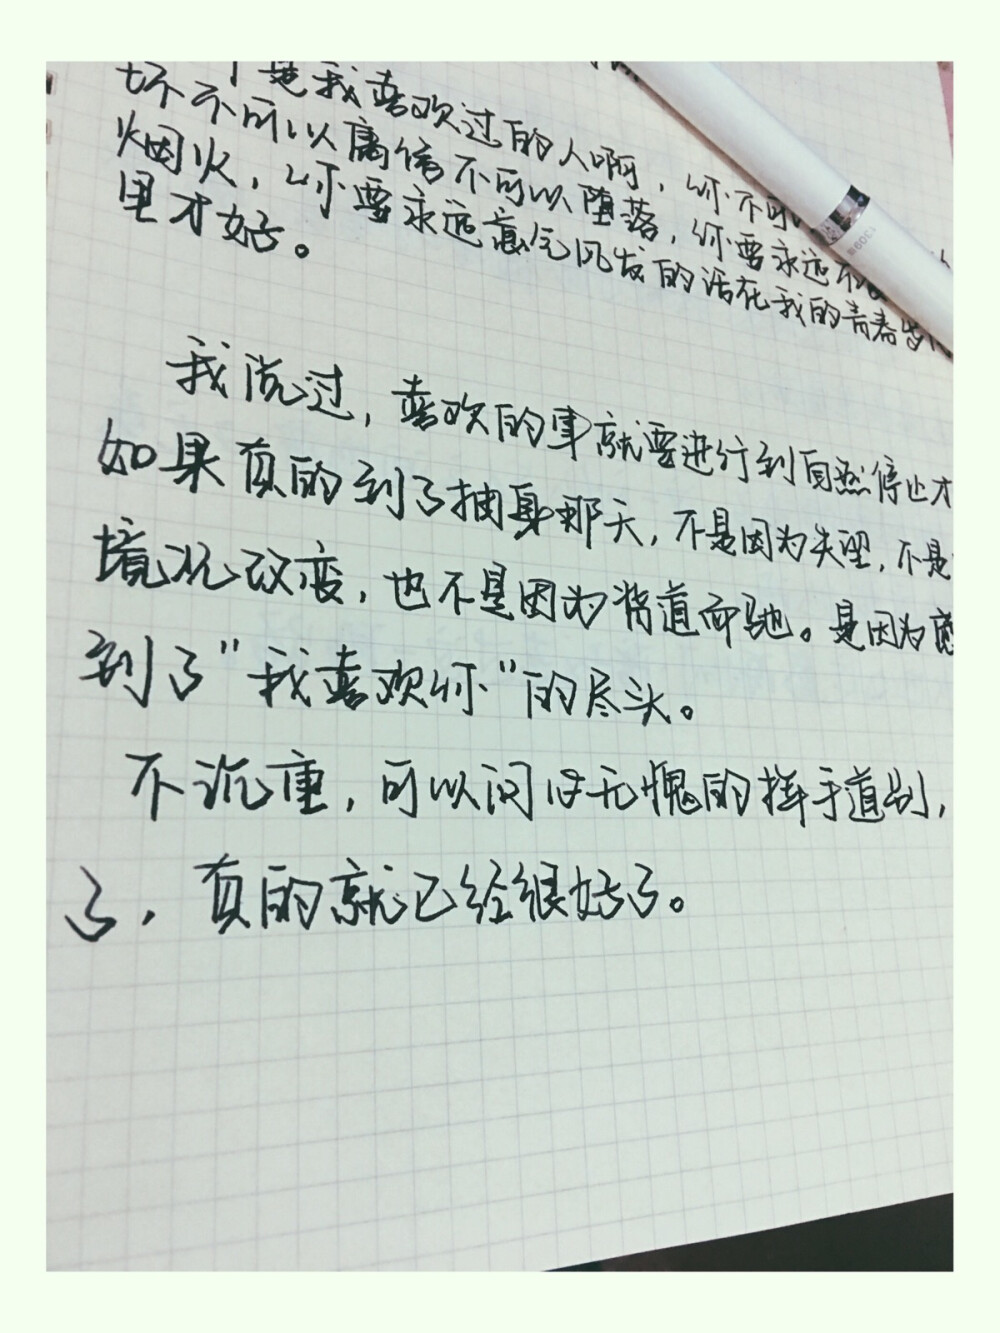 是我喜欢过的人啊，你不可
坏不可以离谱不可以堕落，你要永远不
烟火，你要永远意气风发的活在我的青春岁
里才好。
我说过，喜欢的事就要进行到自然停止才
如果真的到了抽身那天，不是因为失望，不是
境况改变，也不是因为背道而驰。是因为
到了"我喜欢你"的尽头。
不沉重，可以问心无愧的挥手道别，
了，真的就已经很好了。